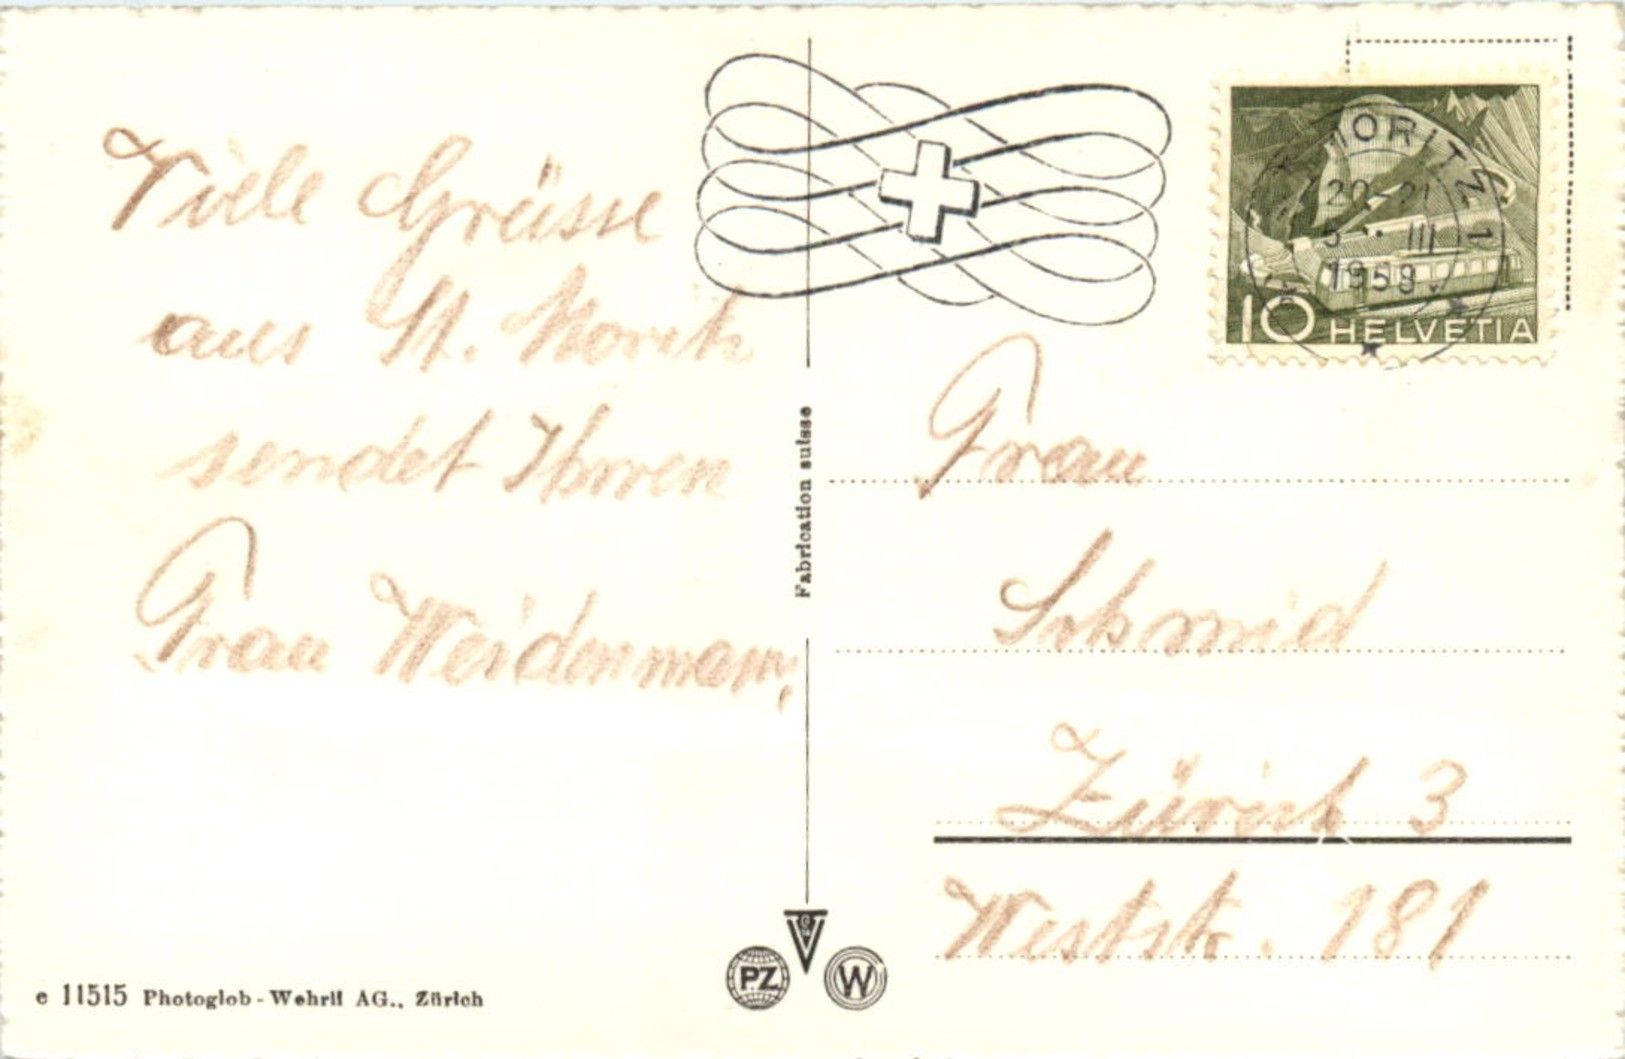 Viele Grüsse
aus St. Moritz
sendet Ihnen
Frau Weidenmann,
Fabrication suisse
MORITZ 1
20-21
5 · III
1958
10 HELVETIA
Frau
Schmid
Zürich 3
Weststr. 181
PZ
W
e 11515 Photoglob-Wehrli AG., Zürich